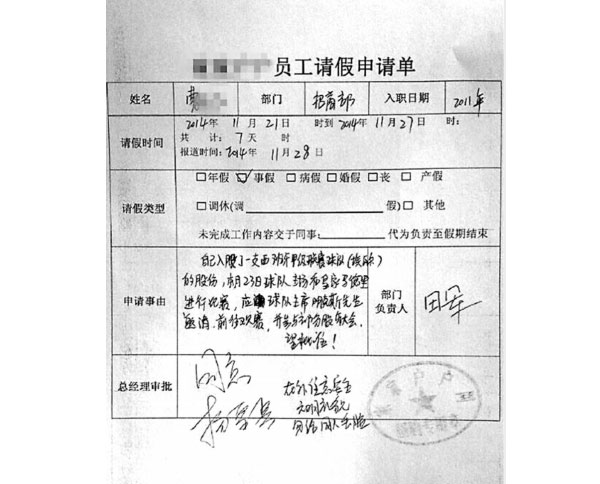 员工请假申请单
姓名 部门 招商部 入职日期 2011年
请假时间 2014年11月21日 时到2014年11月27日 时:
共 计: 7天 时
报道时间: 2014年11月28日
请假类型 □年假 ☑事假 □病假 □婚假 □丧 □产假
□调休( 假)□ 其他
未完成工作内容交于同事: 代为负责至假期结束
自己入股了一支西班牙甲级联赛球队
的股份,本月23日球队主场和皇家马德里
申请事由 进行比赛,应球队主席 先生 部门负责人 田军
邀请,前往观赛,并参与部分股东大会。
望批准!
总经理审批 同意
在外注意安全
文明
勿给国人丢脸